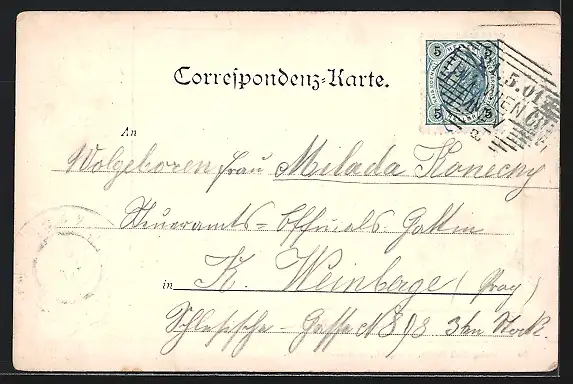 Correspondenz-Karte.
5 5
5 5
5.01
WIEN 68
An
Wolgeboren Frau Milada Konecny
Steueramts-Officials-Gattin
in K. Weinberge (Prag)
Schlesische-Gasse N 898 3ten Stock.